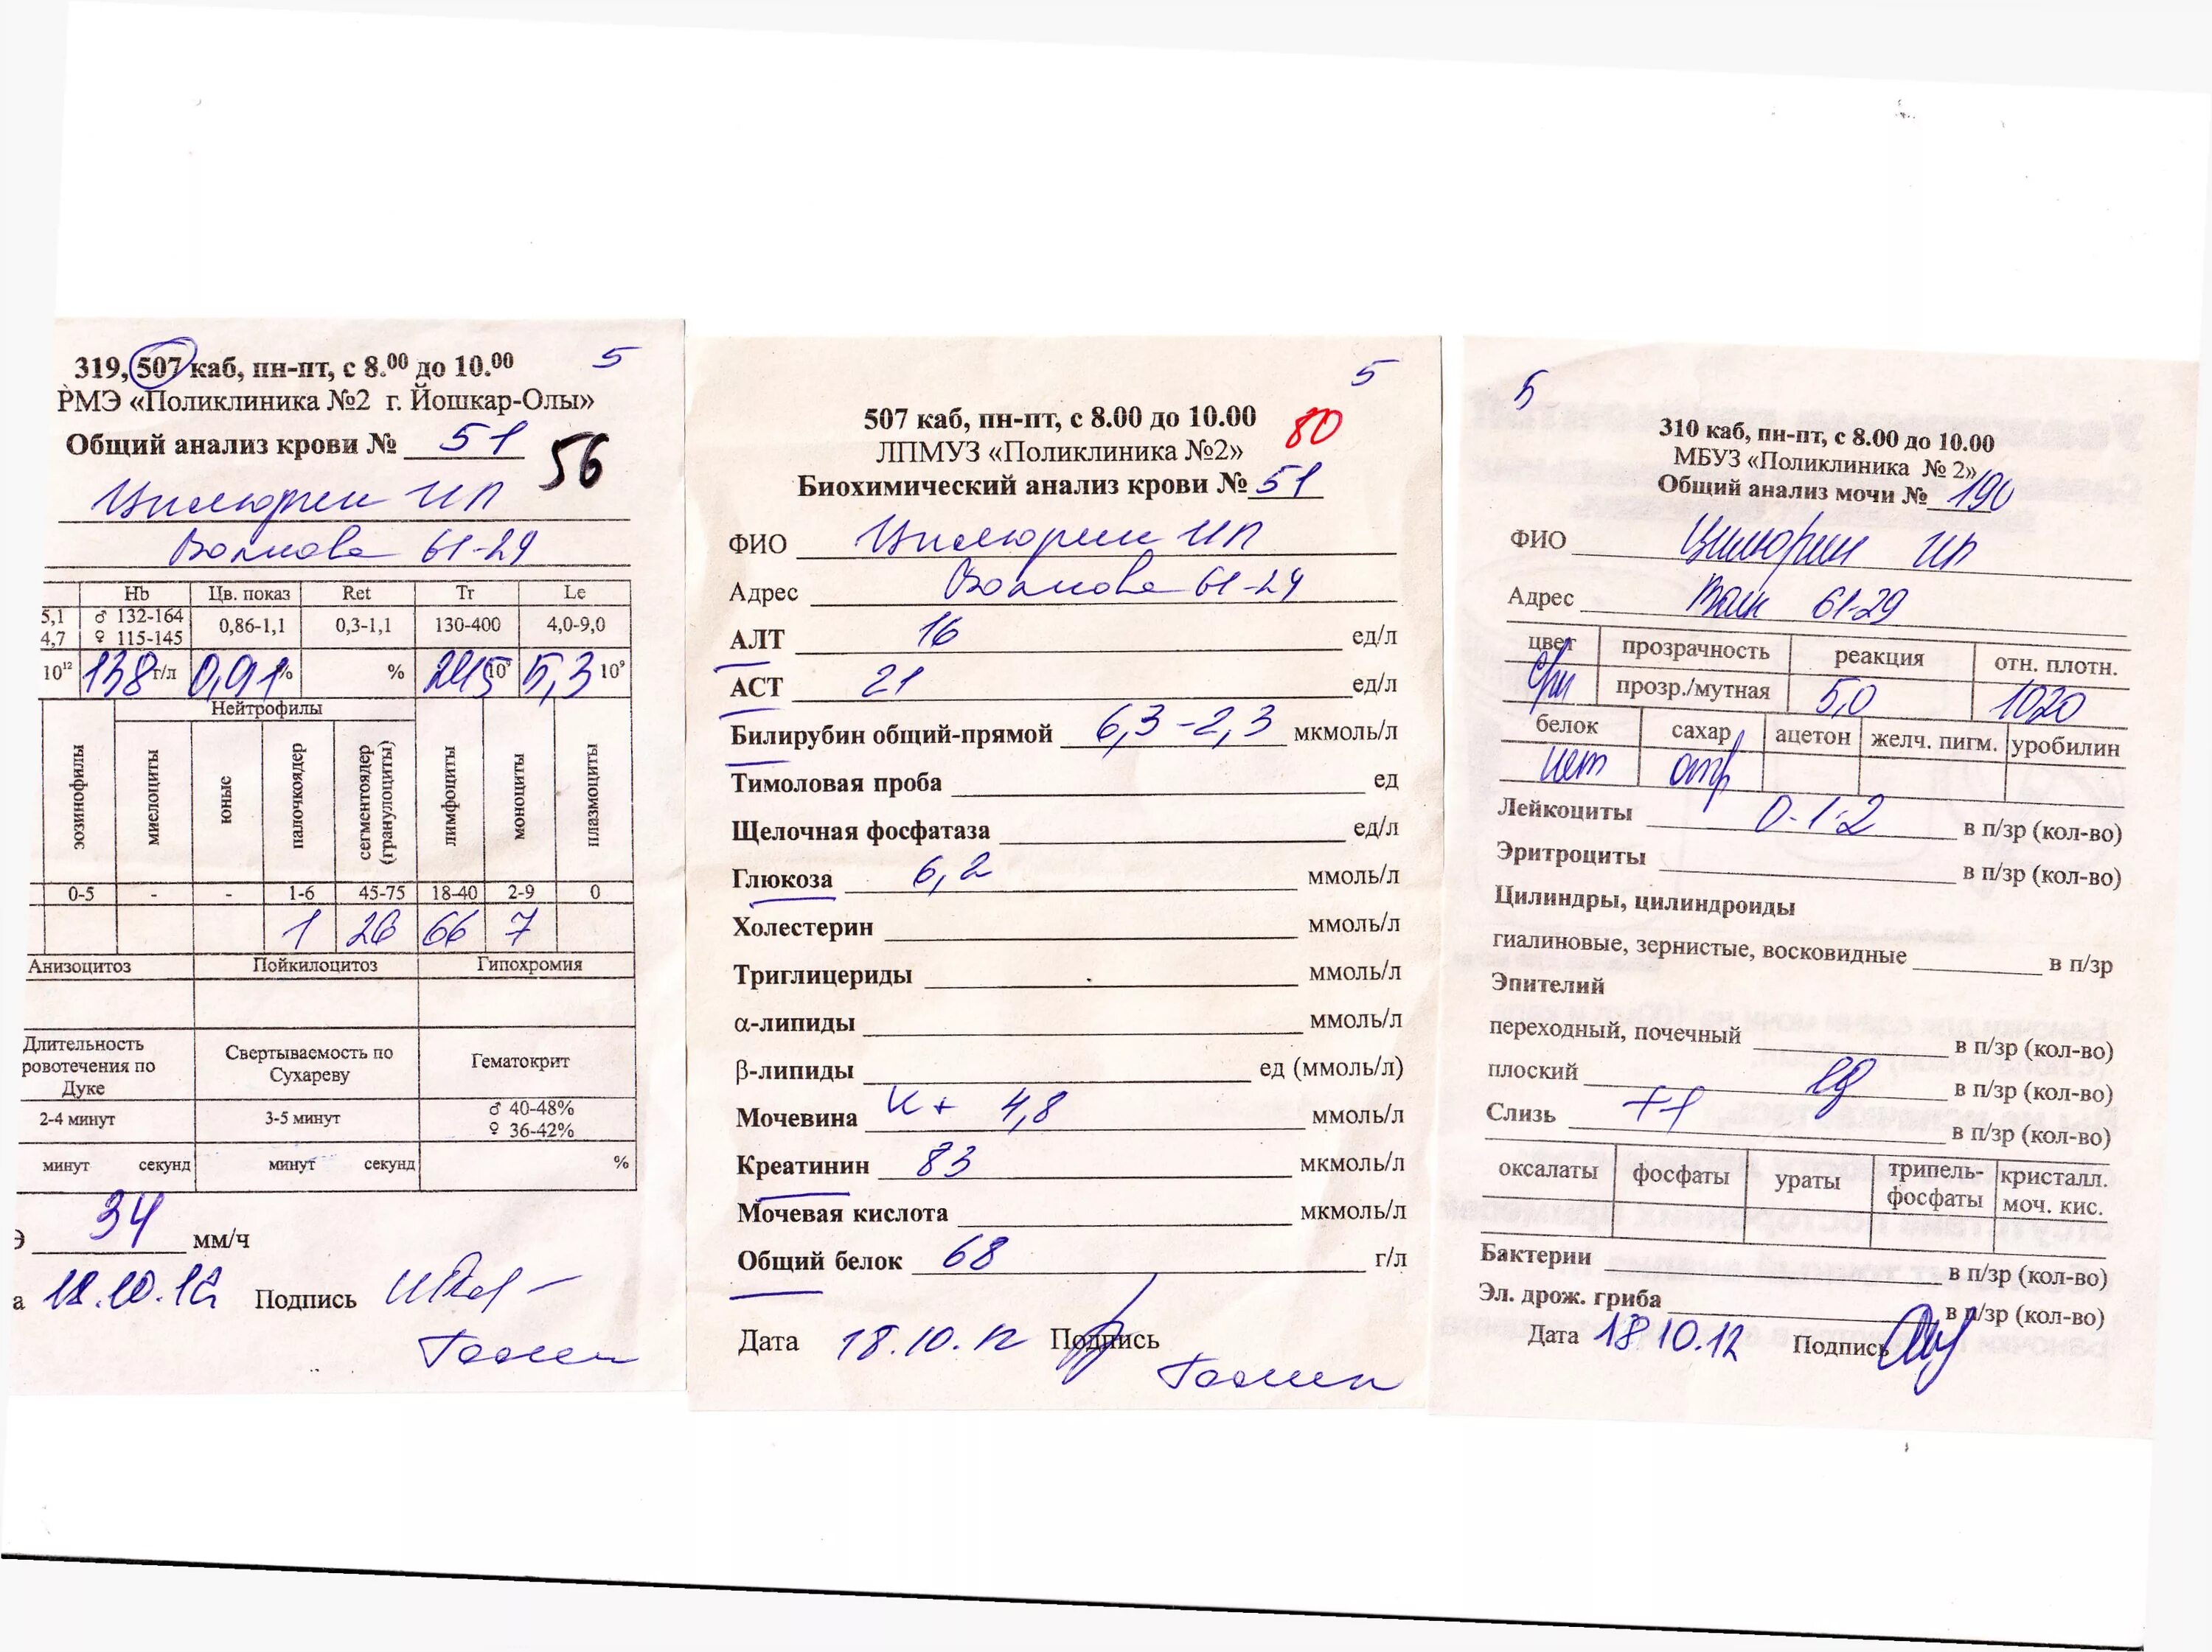 319, 507 каб, пн-пт, с 8.00 до 10.00 5
РМЭ «Поликлиника №2 г. Йошкар-Олы»
Общий анализ крови № 51
56
Цилюрик ИП
61-29
Hb Цв. показ Ret Tr Le
5,1 ♂ 132-164 0,86-1,1 0,3-1,1 130-400 4,0-9,0
4,7 ♀ 115-145
10¹² 138 г/л 0,91 % % 245 10⁹ 5,3 10⁹
Нейтрофилы
эозинофилы миелоциты юные палочкоядер сегментоядер (гранулоциты) лимфоциты моноциты плазмоциты
0-5 - - 1-6 45-75 18-40 2-9 0
1 26 66 7
Анизоцитоз Пойкилоцитоз Гипохромия
Длительность Свертываемость по Гематокрит
ровотечения по Сухареву
Дуке
2-4 минут 3-5 минут ♂ 40-48%
♀ 36-42%
минут секунд минут секунд %
Э 34 мм/ч
а 18.10.12 Подпись
5
507 каб, пн-пт, с 8.00 до 10.00 80
ЛПМУЗ «Поликлиника №2»
Биохимический анализ крови № 51
ФИО Цилюрик ИП
Адрес 61-29
АЛТ 16 ед/л
АСТ 21 ед/л
Билирубин общий-прямой 6,3-2,3 мкмоль/л
Тимоловая проба ед
Щелочная фосфатаза ед/л
Глюкоза 6,2 ммоль/л
Холестерин ммоль/л
Триглицериды ммоль/л
α-липиды ммоль/л
β-липиды ед (ммоль/л)
Мочевина К+ 4,8 ммоль/л
Креатинин 83 мкмоль/л
Мочевая кислота мкмоль/л
Общий белок 68 г/л
Дата 18.10.12 Подпись
5
310 каб, пн-пт, с 8.00 до 10.00
МБУЗ «Поликлиника № 2»
Общий анализ мочи № 190
ФИО Цилюрик ИП
Адрес 61-29
цвет прозрачность реакция отн. плотн.
прозр./мутная 5,0 1020
белок сахар ацетон желч. пигм. уробилин
нет отр
Лейкоциты 0-1-2 в п/зр (кол-во)
Эритроциты в п/зр (кол-во)
Цилиндры, цилиндроиды
гиалиновые, зернистые, восковидные в п/зр
Эпителий
переходный, почечный в п/зр (кол-во)
плоский ед в п/зр (кол-во)
Слизь ++ в п/зр (кол-во)
оксалаты фосфаты ураты трипель-фосфаты кристалл. моч. кис.
Бактерии в п/зр (кол-во)
Эл. дрож. гриба в п/зр (кол-во)
Дата 18.10.12 Подпись